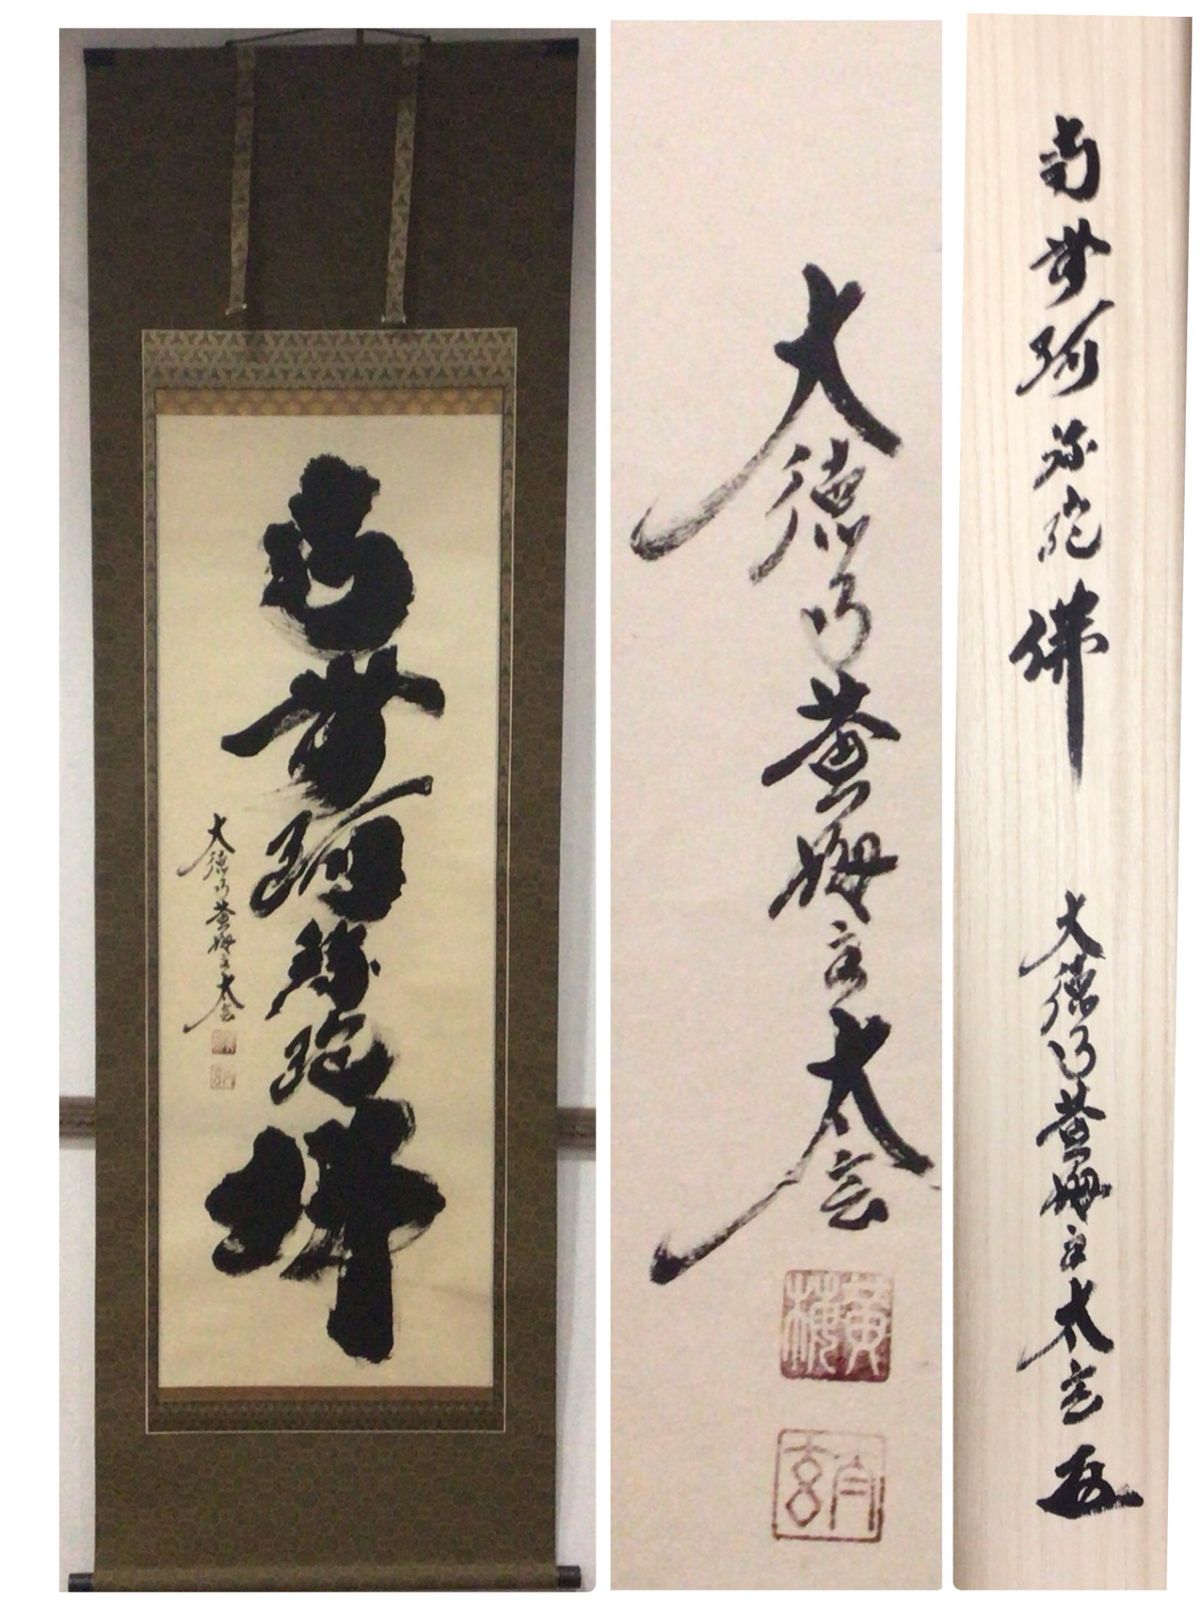 南無阿弥陀佛
大徳寺黄梅主太玄
大徳寺黄梅主太玄
黄梅
南無阿弥陀佛 大徳寺黄梅主太玄